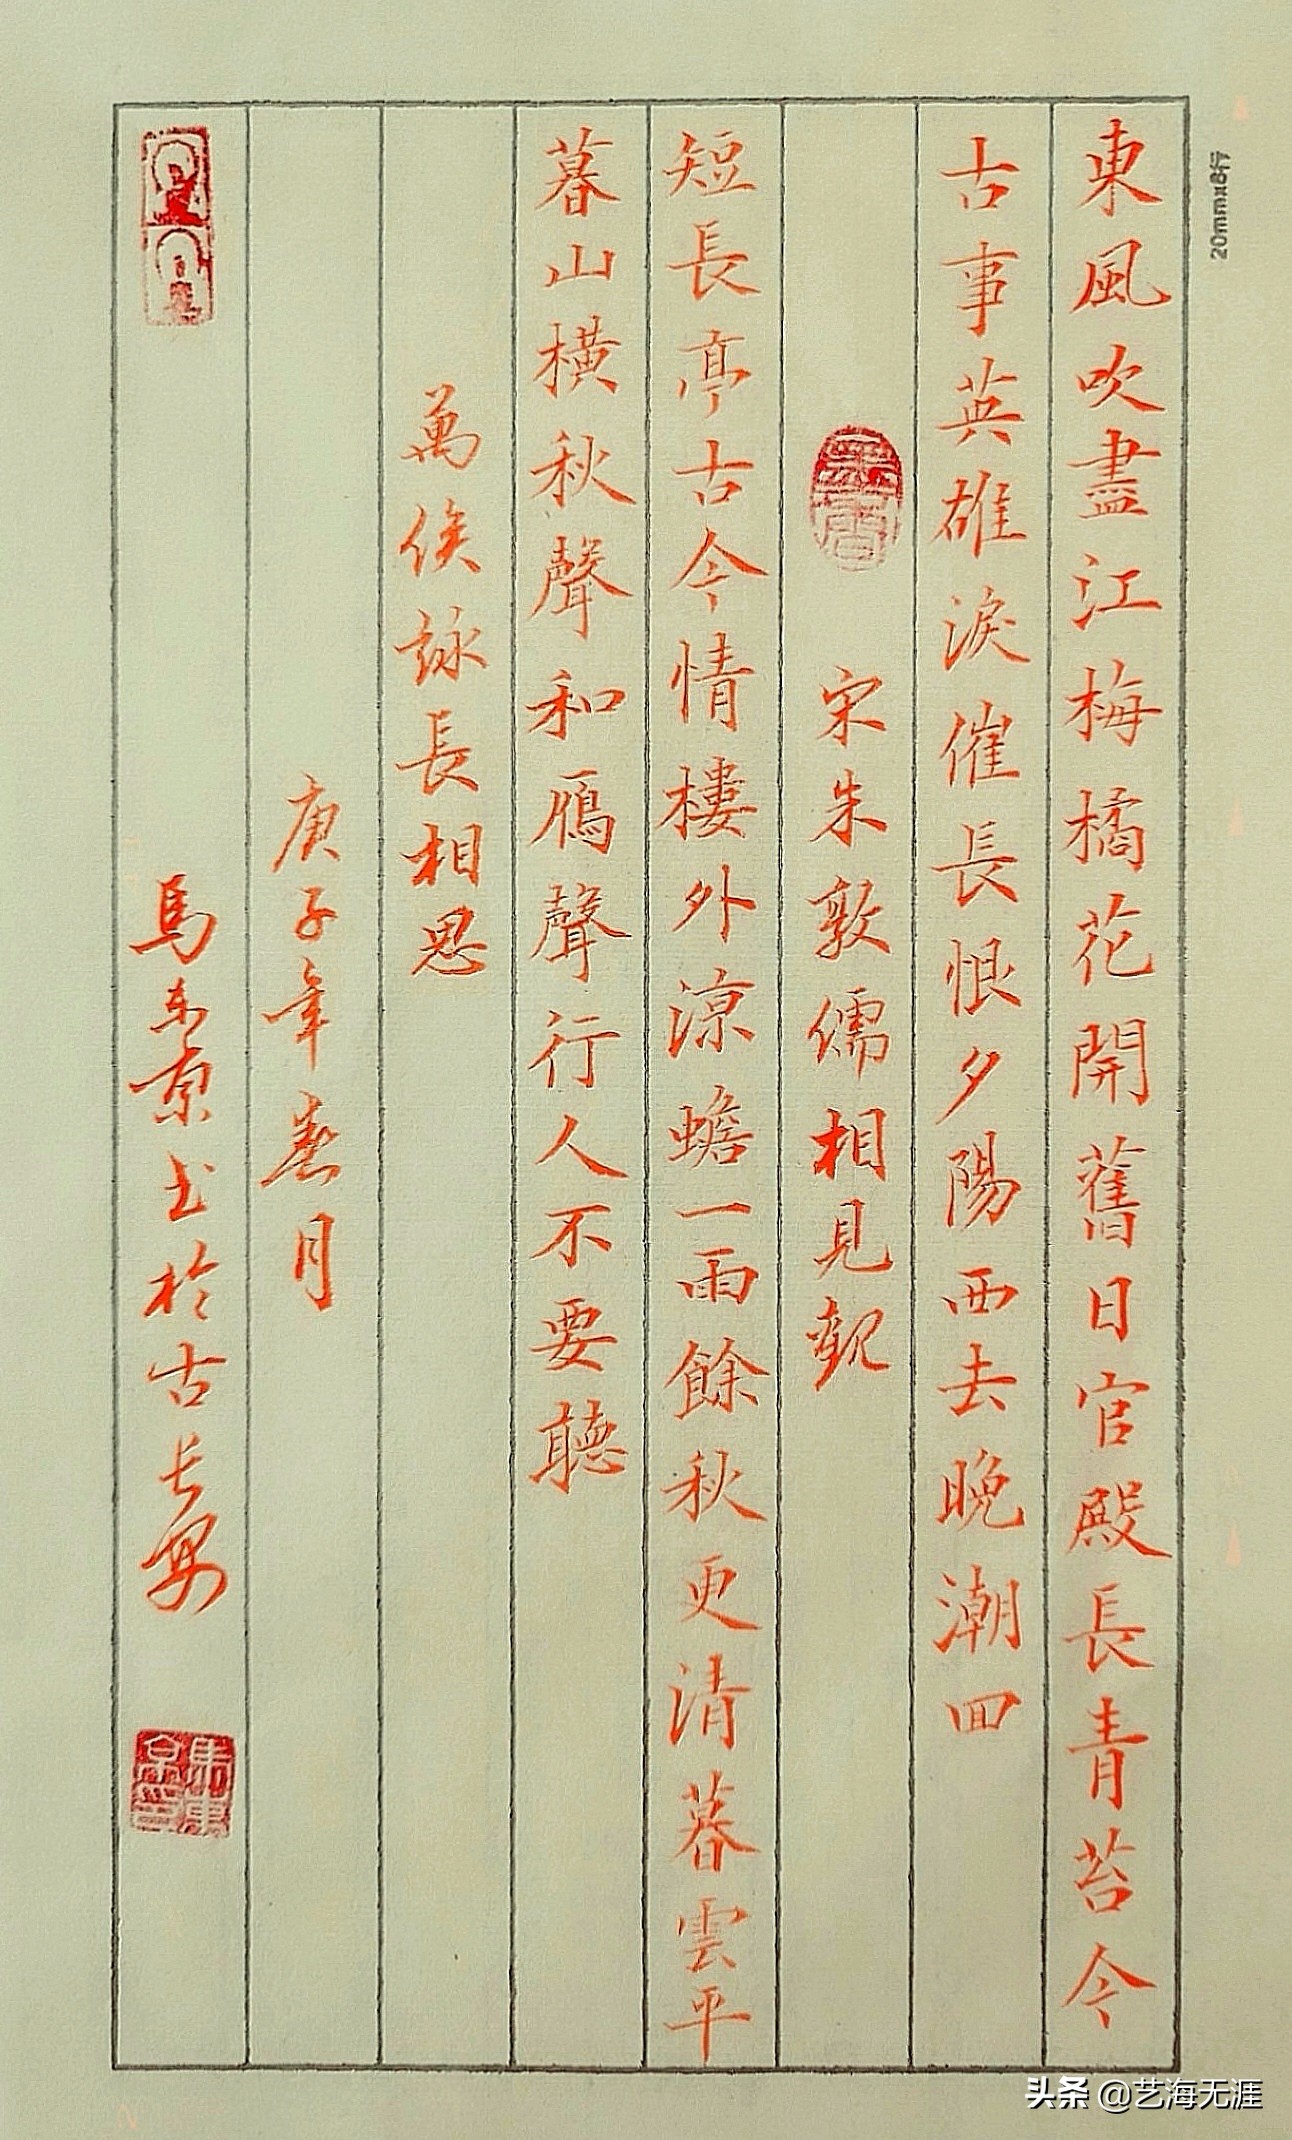 東風吹盡江梅橘花開舊日官殿長青苔今
古事英雄淚催長恨夕陽西去晚潮回
宋朱敦儒相見歡
短長亭古今情樓外涼蟾一雨餘秋更清暮雲平
暮山橫秋聲和鴈聲行人不要聽
萬俟詠長相思
庚子年春月
馬東京书於古长安
20mmx8行
头条 @艺海无涯